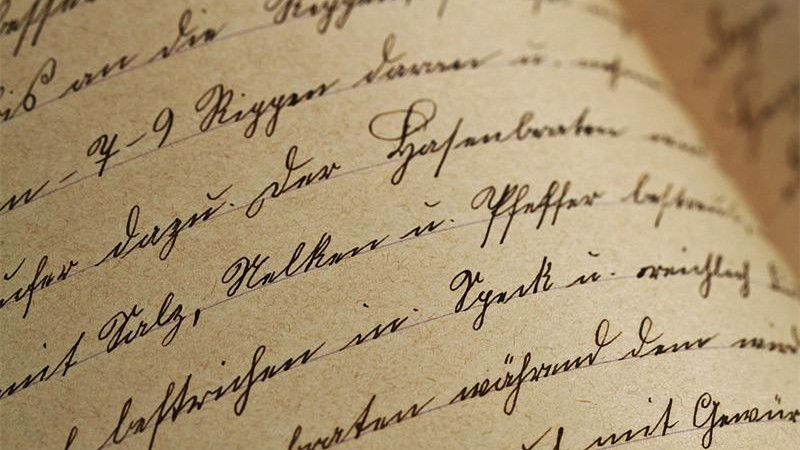 bis an die Rippen
7-9 Rippen daran u.
dazu. Der Hasenbraten
mit Salz, Nelken u. Pfeffer bestreut,
bestrichen in Speck u. reichlich
braten während dem wird
mit Gewür